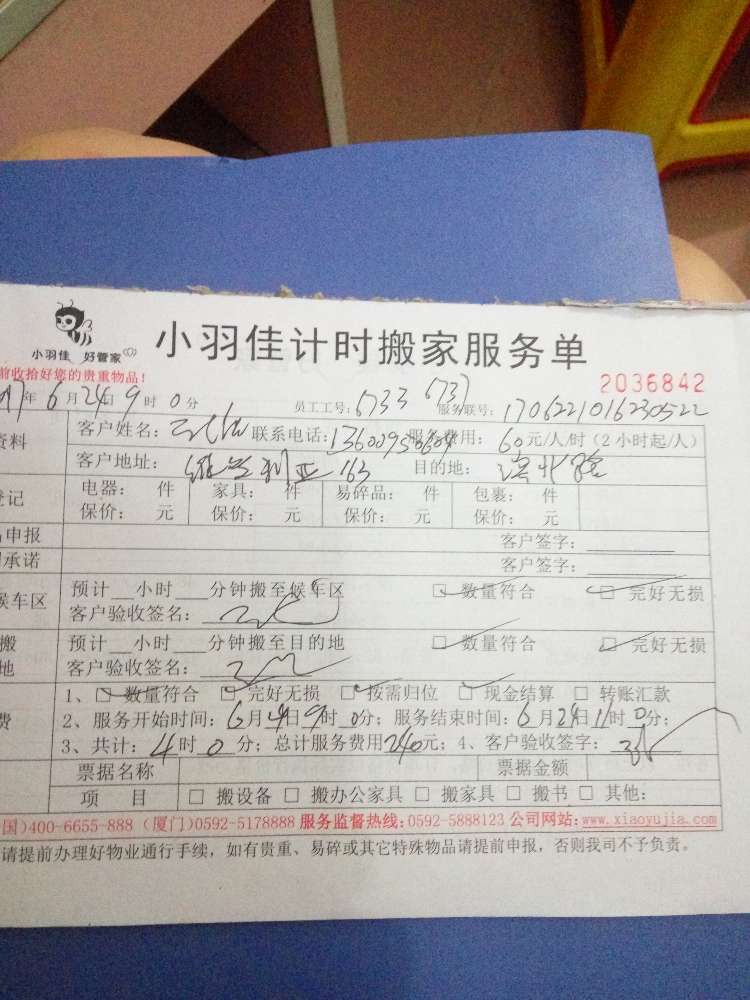 小羽佳 好管家
小羽佳计时搬家服务单
前收拾好您的贵重物品!
2036842
17年6月24日9时0分 员工工号:6733 6737 服务联号:1706221016230522
资料 客户姓名: 联系电话: 服务费用:60元/人/时(2小时起/人)
客户地址: 维多利亚163 目的地:
登记 电器: 件 家具: 件 易碎品: 件 包裹: 件
保价: 元 保价: 元 保价: 元 保价: 元
申报 客户签字:
承诺 客户签字:
候车区 预计__小时___分钟搬至候车区 □数量符合 □完好无损
客户验收签名:
搬 预计__小时___分钟搬至目的地 □数量符合 □完好无损
地 客户验收签名:
1、□数量符合 □完好无损 □按需归位 □现金结算 □转账汇款
费 2、服务开始时间:6月4日9时0分;服务结束时间:6月24日11时0分;
3、共计:4时0分;总计服务费用240元;4、客户验收签字:
票据名称 票据金额
项 目 □搬设备 □搬办公家具 □搬家具 □搬书 □其他:
国)400-6655-888 (厦门)0592-5178888 服务监督热线:0592-5888123 公司网站:www.xiaoyujia.com
请提前办理好物业通行手续,如有贵重、易碎或其它特殊物品请提前申报,否则我司不予负责。